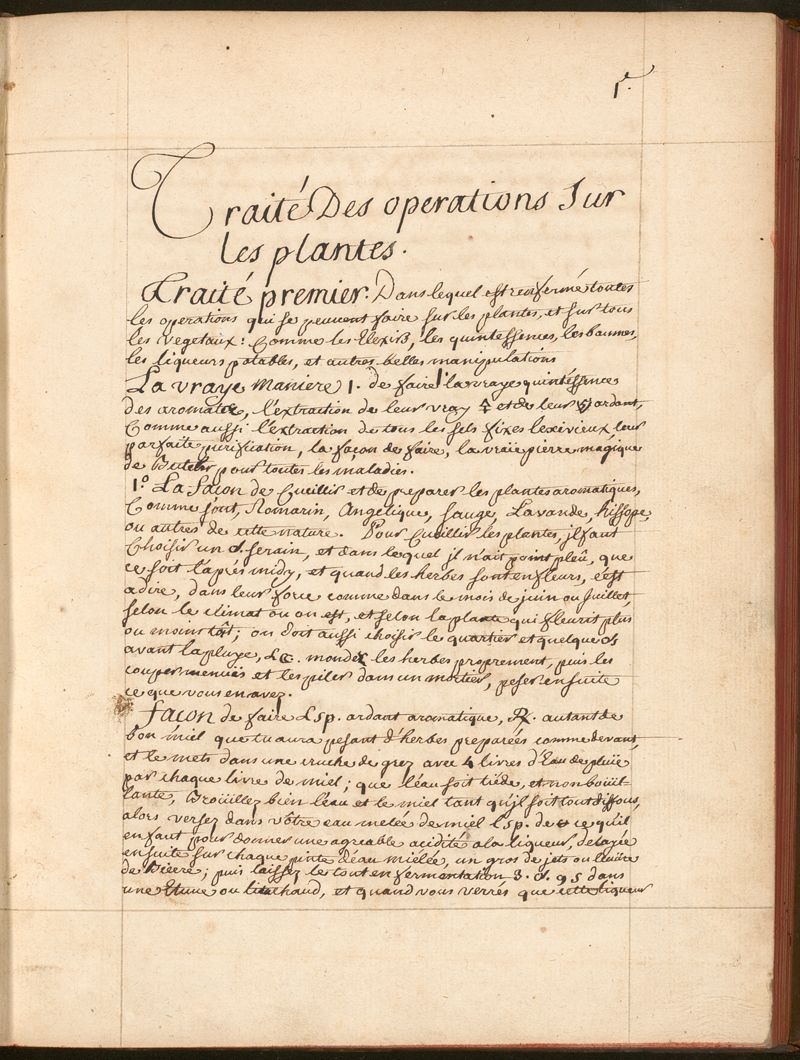 1.
Traité Des operations Sur
les plantes.
Traité premier. Dans lequel est renfermé toutes
les operations qui se peuvent faire sur les plantes, et sur tous
les vegetaux: Comme les Elexirs, les quintessences, les baumes,
les liqueurs potables, et autres belles manipulations
La vraye Maniere 1. de faire la vraye quintéssence
des aromates, l'extraction de leur vray 🜍 et de leur ardant,
Comme aussi l'extraction de tous les sels fixes lexivieux, leur
parfaite purification, la façon de faire, la vraïe pierre magique
de Butler pour toutes les maladies.
1.° La façon de Cueillir et de preparer les plantes aromatiques,
Comme sont, Romarin, Angelique, sauge, Lavande, hissope,
ou autres de cette nature. Pour Cueillir les plantes, jl faut
Choisir un d. serain, et dans lequel jl n'ait point plû, que
ce soit l'aprés midy, et quand les herbes sont en fleurs, c'ést
a dire, dans leur force comme dans le mois de juin ou Juillet,
selon le climat ou on est, et selon la plante qui fleurit plus
ou moins tôt; on doit aussi choisir le quartier et quelque
avant la pluye, &c. mondéz les herbes proprement, puis les
couper menuës et les piler dans un mortier, peser ensuite
ce que vous en avez.
façon de faire l'sp. ardant aromatique, ℞. autant de
bon miel que tu aura pesant d'herbes preparées comme devant,
et le mets dans une cruche de grez avec 4 livres d'Eau de pluïe
par chaque livre de miel; que l'éau soit tiëde, et non boüil-
lante, Broüillez bien l'éau et le miel tant qu'jl soit tout dissous,
alors versez dans vôtre eau melée de miel l'sp. de ce qu'il
en faut pour donner une agreable acidité a la liqueur, delayée
ensuite sur chaque pinte d'éau mielée, un gros de jets ou levûre
de Bierre; puis laissez le tout en fermentation 3. d. 95 dans
une Etuve ou lieu chaud, et quand vous verrés que cette liqueur